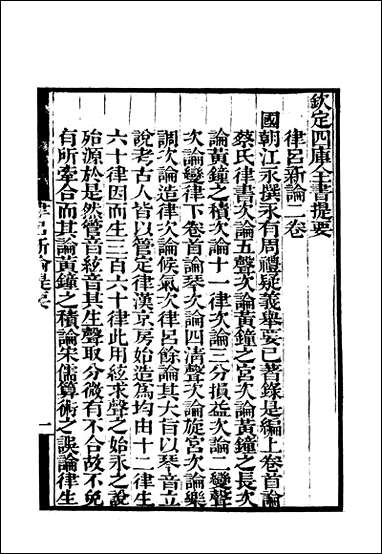 欽定四庫全書提要
律呂新論二卷
國朝江永撰永有周禮疑義舉要已著錄是編上卷首論
蔡氏律書次論五聲次論黃鐘之宮次論黃鐘之長次
論黃鐘之積次論十一律次論三分損益次論二變聲
次論變律下卷首論琴次論四清聲次論旋宮次論樂
調次論造律次論候氣次律呂餘論其大旨以琴音立
說考古人皆以管定律漢京房始造為均由十二律生
六十律因而生三百六十律此用絃求聲之始永之說
殆源於是然管音絃音其生聲取分微有不合故不免
有所牽合而其論黃鐘之積論宋儒算術之誤論律生
律呂新論提要
一